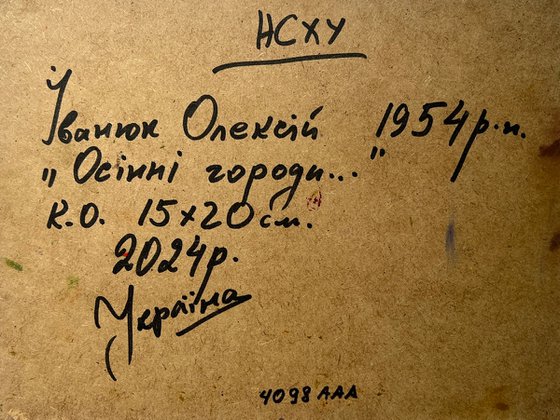 НСХУ
Іванюк Олексій 1954р.н.
„Осінні городи..."
К.О. 15х20см.
2024р.
Україна
4098ААА